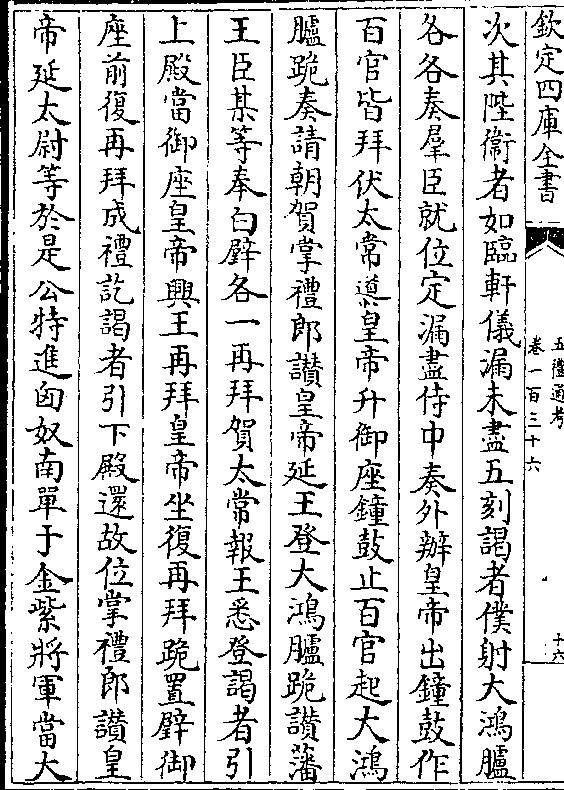 欽定四庫全書
五禮通考
卷一百三十六
十六
次其陛衞者如臨軒儀漏未盡五刻謁者僕射大鴻臚
各各奏羣臣就位定漏盡侍中奏外辦皇帝出鐘鼓作
百官皆拜伏太常導皇帝升御座鐘鼓止百官起大鴻
臚跪奏請朝賀掌禮郎讚皇帝延王登大鴻臚跪讚藩
王臣某等奉白璧各一再拜賀太常報王悉登謁者引
上殿當御座皇帝興王再拜皇帝坐復再拜跪置璧御
座前復再拜成禮訖謁者引下殿還故位掌禮郎讚皇
帝延太尉等於是公特進匈奴南單于金紫將軍當大